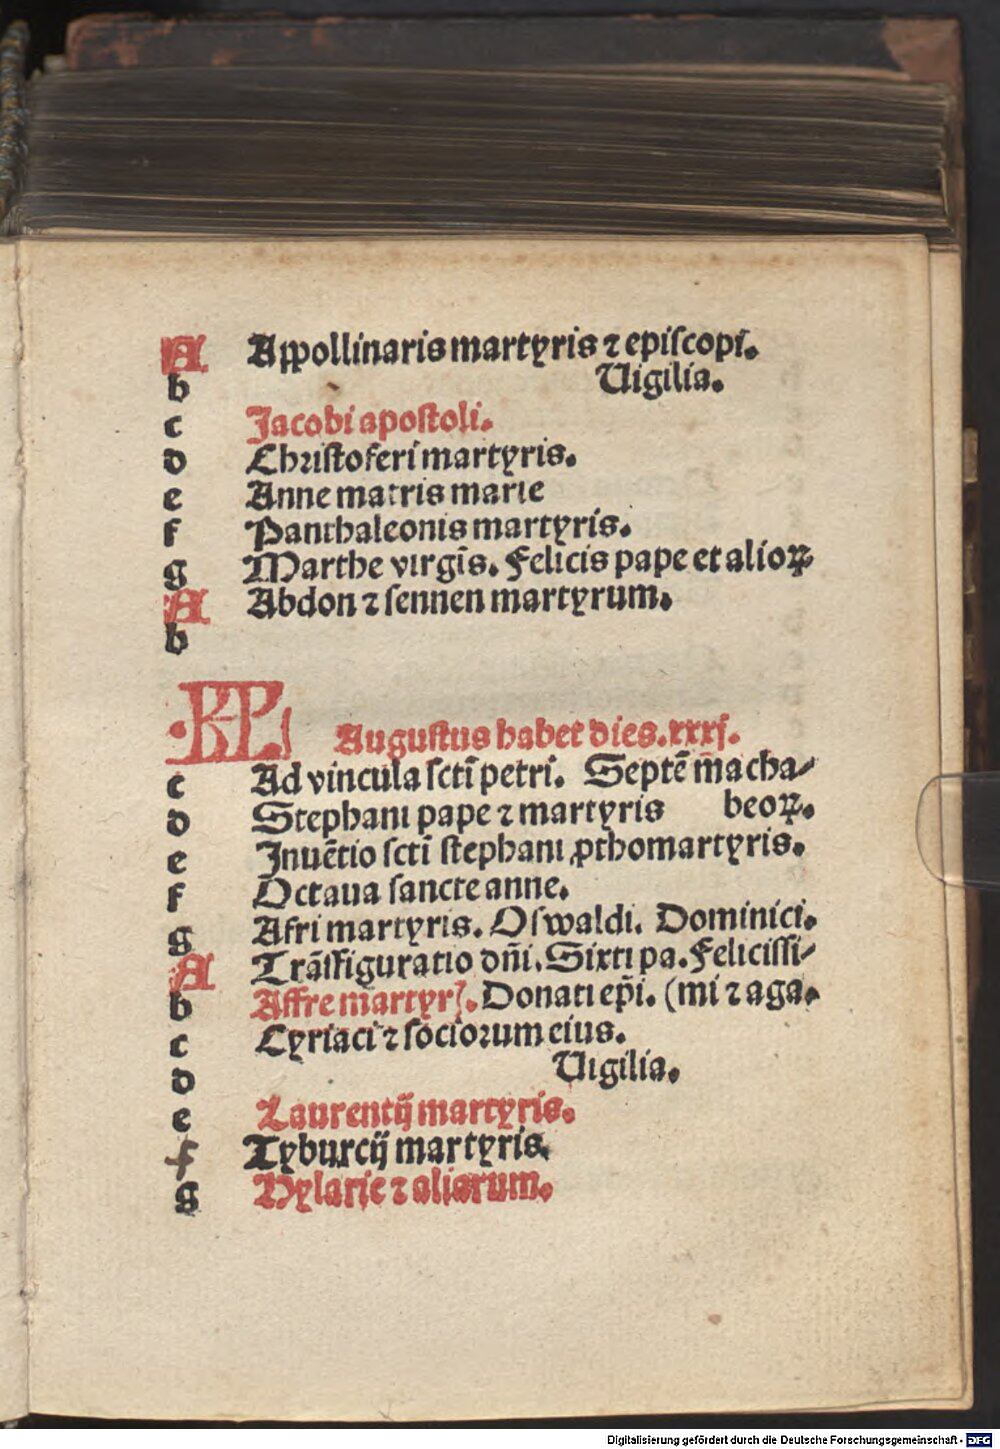 A Appollinaris martyris ⁊ episcopi.
b Uigilia.
c Jacobi apostoli.
d Christoferi martyris.
e Anne matris marie
f Panthaleonis martyris.
g Marthe virgīs. Felicis pape et alioꝝ
A Abdon ⁊ sennen martyrum.
b
KL Augustus habet dies.xxxj.
c Ad vincula sctī petri. Septē macha/
d Stephani pape ⁊ martyris beoꝝ.
e Inuētio sctī stephani ꝓthomartyris.
f Octaua sancte anne.
g Afri martyris. Oswaldi. Dominici.
A Trāsfiguratio dn̄i. Sixti pa. Felicissi/
b Affre martyrꝭ. Donati ep̄i. (mi ⁊ aga.
c Cyriaci ⁊ sociorum eius.
d Uigilia.
e Laurentij martyris.
f Tyburcij martyris.
g Hylarie ⁊ aliarum.
Digitalisierung gefördert durch die Deutsche Forschungsgemeinschaft - DFG